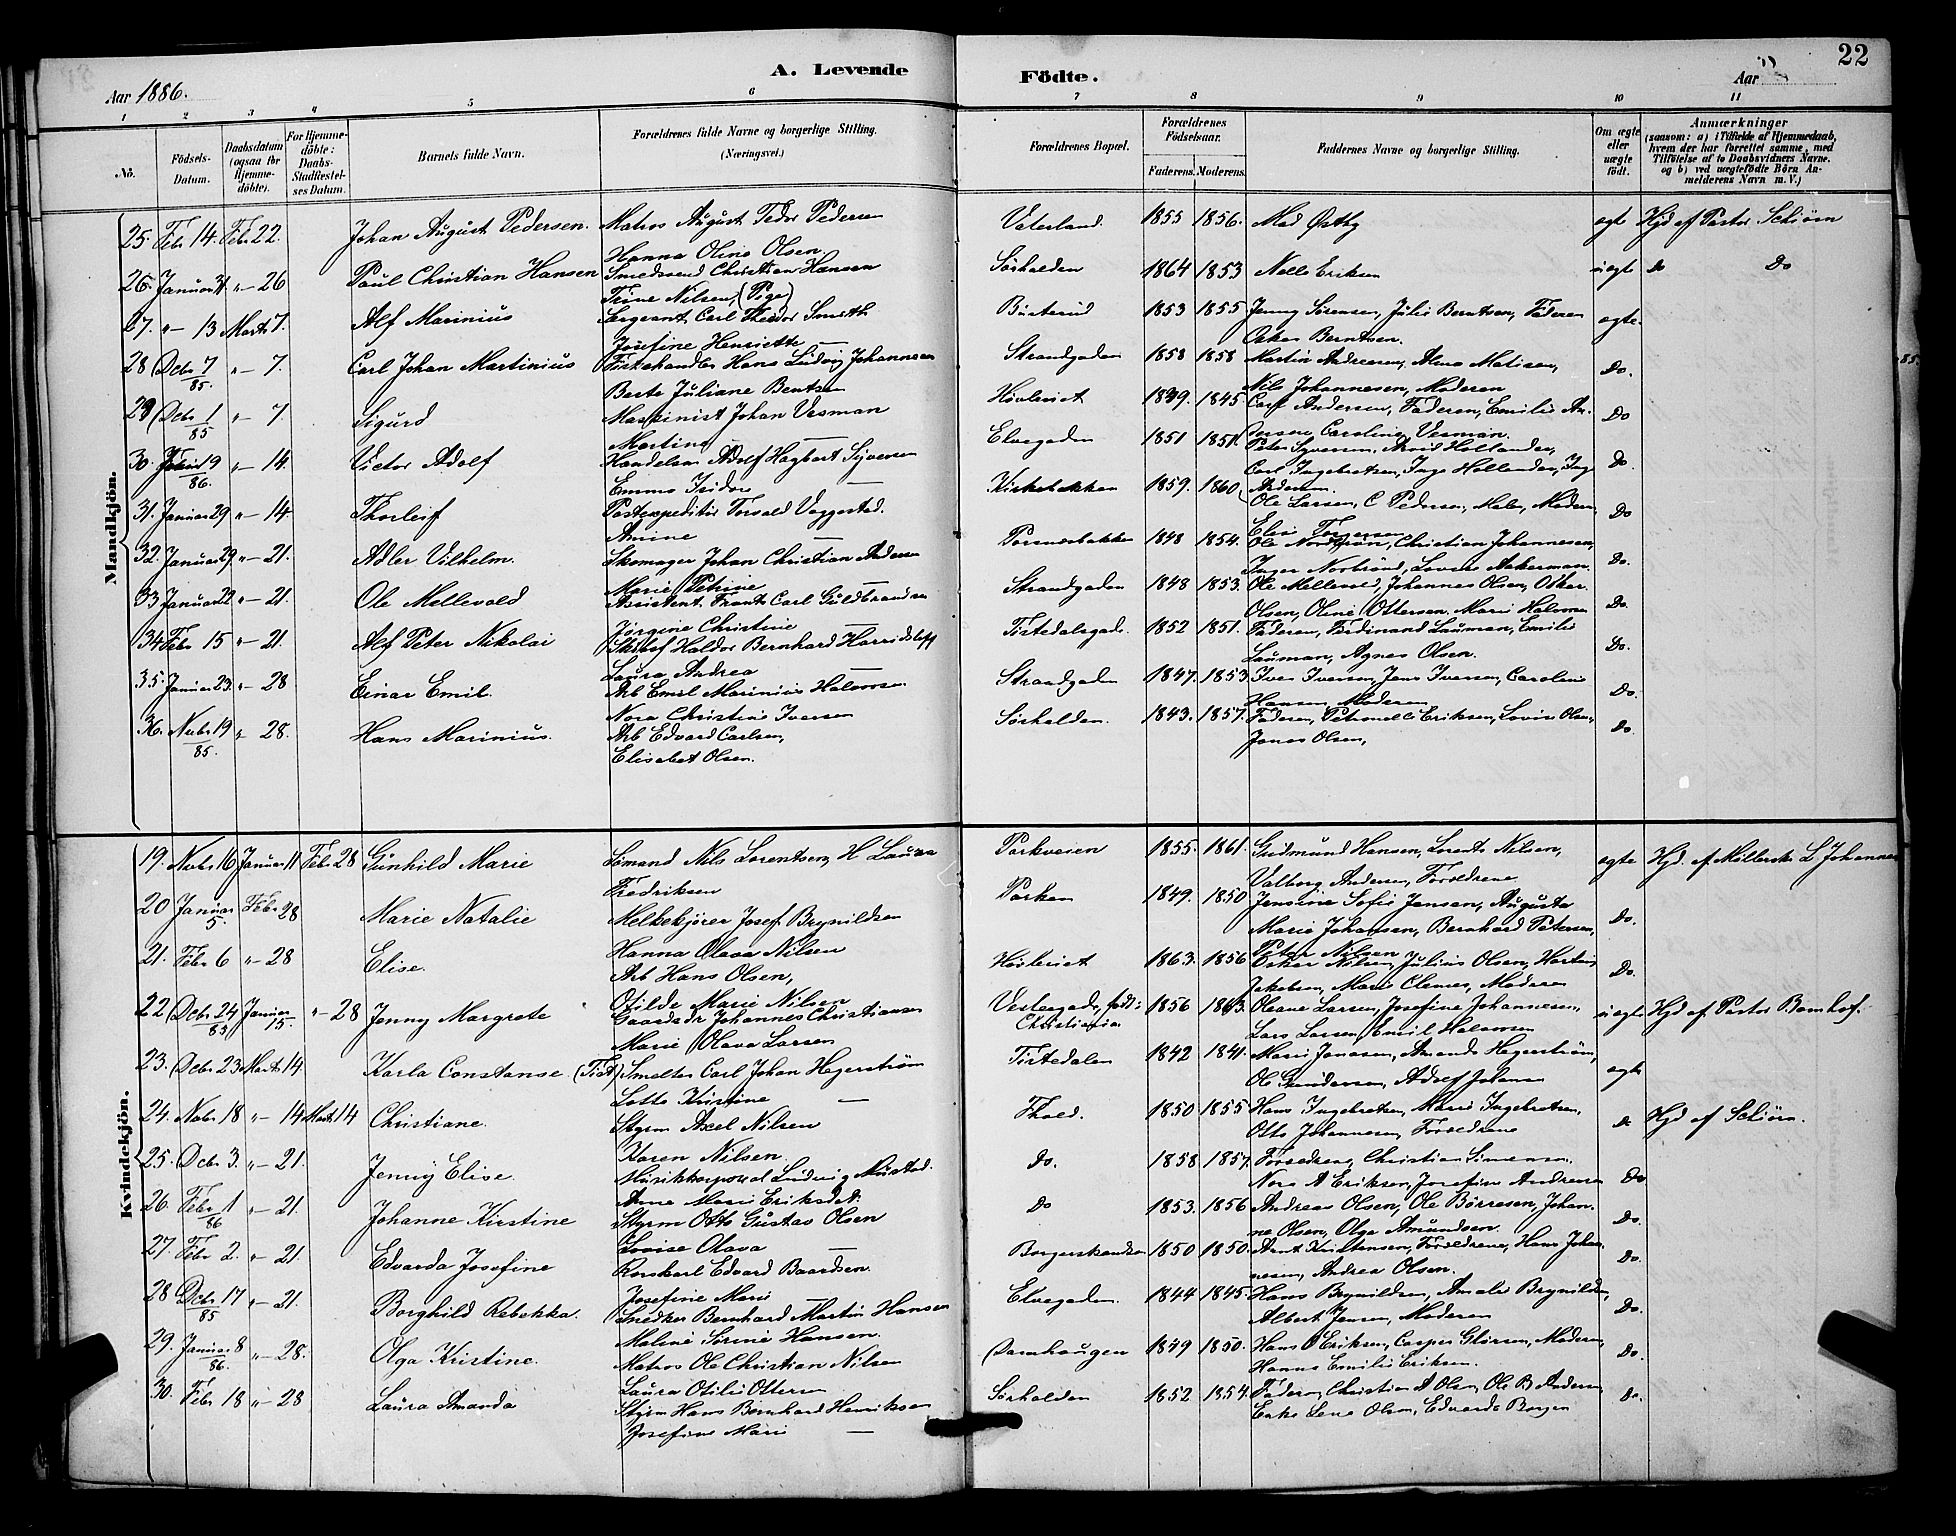 Aar 1886.
A. Levende
Födte.
Aar
22
1 2 3 4 5 6 7 8 9 10 11
No.
Födsels-Datum.
Daabsdatum (ogsaa for Hjemme-döbte).
For Hjemme-döbte: Daabs-Stadfæstel-ses Datum.
Barnets fulde Navn.
Forældrenes fulde Navne og borgerlige Stilling. (Næringsvei.)
Forældrenes Bopæl.
Forældrenes Födselsaar.
Faderens. Moderens.
Faddernes Navne og borgerlige Stilling.
Om ægte eller uægte födt.
Anmærkninger
(saasom: a) i Tilfælde af Hjemmedaab, hvem der har forrettet samme, med Tilföielse af to Daabsvidners Navne. og b) ved uægtefödte Börn An-melderens Navn m. V.)
Mandkjön.
25. Febr 14. Febr 22. Johan August Pedersen. Matros August Fedor Pedersen Vaterland. 1855 1856. Mad Østby ægte Hjd af Pastor Schiörn
Hanna Oline Olsen
26. Januar 31 " 26 Paul Christian Hansen Smedsvend Christian Hansen Sørhalden 1864 1853 Nelle Eriksen uægte Do Do
Trine Nilsen, (Pige)
27. " 13 Marts 7. Alf Marinius Sergeant Carl Theodor Smith Busterud 1853 1855 Jenny Sørensen, Julie Berntsen, Faderen ægte.
Josefine Henriette — Oskar Berntsen.
28 Decbr 7/85. " 7. Carl Johan Martinius Fiskehandler Hans Ludvig Johannesen Strandgaden 1858 1858 Martin Andreasen, Alma Matisen, Do.
Berte Juliane Bentsen Nils Johannesen, Moderen
29 Decbr 1/85 " 7. Sigurd Maskinist Johan Vesman Hovleriet 1849. 1845. Carl Andersen, Faderen, Emilie An- Do
Martine — dersen Caroline Vesman.
30. 19/86. " 14. Victor Adolf Handelsm Adolf Hagbart Syversen Elvegaden 1851 1851. Peter Syversen, Hollander, Do.
Emma Isidora — Carl Ingebretsen, Inga Hollander, Ing
Andersen.
31. Januar 29 " 14. Thorleif Postexpeditör Torvald Vaggestad. Kirkebakken 1859. 1860. Ole Larsen, C Pedersen, Moderen Do
Amine —
32. Januar 29. " 21. Adler Vilhelm. Skomager Johan Christian Andersen 1848 1854. Ole Nordström, Christian Johannesen, Do.
Marie Petrine — Inger Lovise Akerman.
33 Januar 22 " 21. Ole Mellevold Assistent. Frants Carl Guldbrandsen Strandgaden 1848 1853. Ole Mellevold, Johannes Olsen, Oskar Do.
Jörgine Christine Olsen, Oline Ottersen. Marie Halvorsen
34 Febr 15 " 21. Alf Peter Nikolai Haldor Bernhard Tistedalsgad. 1852 1851. Faderen, Ferdinand Lauman, Emilie Do.
Laura Andrea — Lauman, Agnes Olsen.
35. Januar 23. " 28 Einar Emil. Arb Emil Marinius Halvorsen Strandgaden 1847. 1853 Iver Iversen, Jens Iversen, Caroline Do.
Nora Christine Iversen Hansen, Moderen
36. Novbr 19/85. " 28. Hans Marinius. Arb Edvard Carlsen, Sørhalden. 1843. 1857. Faderen, Petronelle Eriksen, Lovise Olsen, Do.
Elisabet Olsen. Jonas Olsen,
Kvindekjön.
19. Novbr 16 Januar 11 Febr 28 Gunhild Marie Sömand Nils Lorentsen, H Laura Parkveien 1855. 1861. Gudmund Hansen, Lorents Nilsen, ægte Hjd af Müllerske L Johannesen
Fredriksen Valborg Andersen, Forældrene
20 Januar 5. Febr 28 Marie Natalie Melkekjörer Josef Brynildsen Parken 1849. 1850 Jensine Sofie Jensen, Augusta Do.
Hanna Olava Nilsen Marie Johansen, Bernhard Petersen,
Peter Nilsen
21. Febr 6 " 28 Elise. Arb Hans Olsen, Hovleriet 1863. 1856 Oskar Nilsen, Julius Olsen, Do.
Otilde Marie Nilsen Jakobsen, Marie Clemes, Moderen
22 Decbr 24/85 Januar 15. " 28 Jenny Margrete Gaardsdr Johannes Christiansen Vestergade, födt: 1856 1863. Oleane Larsen, Josefine Johannesen, uægte Hjd af Pastor Bomhof.
Marie Olava Larsen Christiania Lars Larsen, Emil Halvorsen
23. Decbr 23 Marts 14. Karla Constanse (Tist) Smelter Carl Johan Hegerström Tistedalen 1842 1841. Marie Jonasen, Amanda Hegerström, ægte
Lotte Kristine — Ole Gundersen, Adolf Johansen
24. Novbr 18 " 14 Marts 14 Christiane. Styrm Axel Nilsen Thold. 1850 1855 Hans Ingebretsen, Marie Ingebretsen, Do Hjd af Schiörn.
Karen Nilsen. Otto Johannesen, Forældrene
25. Dcbr 3. " 21. Jenny Elise. Musikkorporal Ludvig Mustad. Do. 1858 1857. Forældrene, Christian Simensen, Do
Anne Marie Eriksdat: Nora A Eriksen, Josefine Andresen
26. Febr 1/86 " 21. Johanne Kirstine Styrm Otto Gustav Olsen Do 1853. 1856 Andreas Olsen, Ole Börresen, Johan- Do.
Lovise Olava — ne Olsen, Olga Amundsen.
27. Febr 2. " 21. Edvarda Josefine Rorskarl Edvard Baardsen. Borgerskandsen 1850 1850. Arnt Kristensen, Forældrene, Hans Johan- Do.
Josefine Marie — nesen, Andrea Olsen.
28 Dcbr 17/85 " 21. Borghild Rebekka. Snedker Bernhard Martin Hansen Elvegaden. 1844 1845. Hans Brynildsen, Amalie Brynildsen, Do.
Maline Sorine Hansen. Albert Jensen, Moderen
29. Januar 8/86. " 28. Olga Kristine. Matros Ole Christian Nilsen Damhaugen 1849 1850. Hans O Eriksen, Casper Glörsen, Moderen, Do.
Laura Otilie Ottersen Hanna Emilie Eriksen.
30. Febr 18 " 28 Laura Amanda Styrm Hans Bernhard Henriksen Sørhalden 1852 1854. Faderen, Christian A Olsen, Ole B Andersen, Do.
Josefine Marie — Enke Lena Olsen, Edvarda Borgen